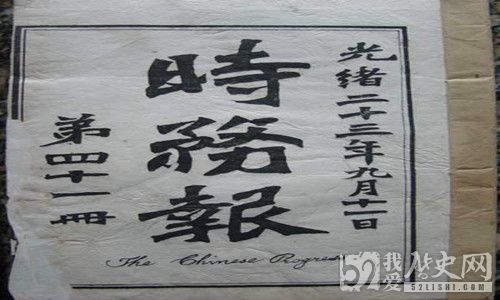 光緒二十三年九月十一日
時務報
第四十一冊
The Chinese Progress
52 我爱历史网
52LISHI.COM